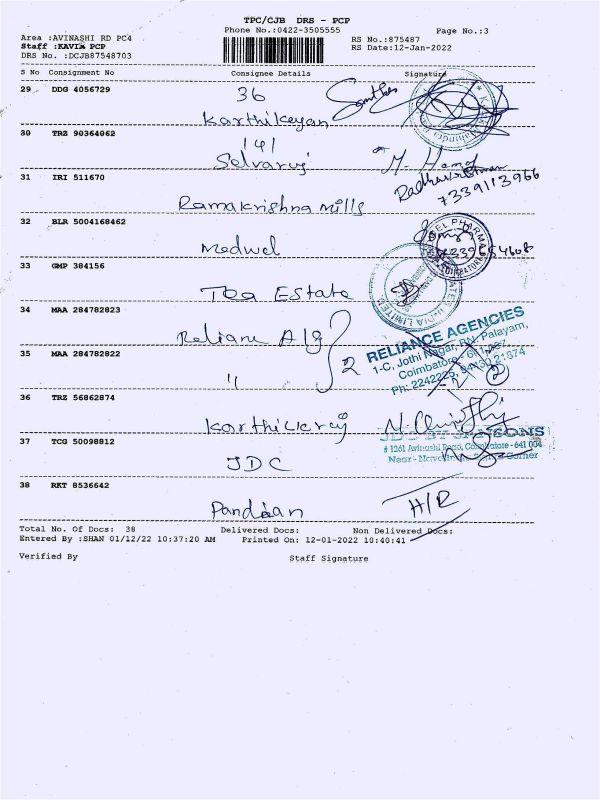 TPC/CJB DRS - PCP
Phone No.:0422-3505555
Page No.:3
Area :AVINASHI RD PC4
RS No.:875487
Staff :KAVIN PCP
RS Date:12-Jan-2022
DRS No. :DCJB87548703
S No Consignment No Consignee Details Signature
29 DDG 4056729 36
Karthikeyan
30 TRZ 90364062 141
Selvaraj
M.
31 IRI 511670
7339113966
Ramakrishna mills
32 BLR 5004168462
Medwel
33 GMP 384156
Tea Estate
34 MAA 284782823
Reliane Alg
2
RELIANCE AGENCIES
1-C, Jothi Nagar, RN. Palayam,
Coimbatore -
Ph: 2242225,
35 MAA 284782822
"
36 TRZ 56862874
Karthickraj
37 TCG 50098812
# 1261 Avinashi Road, Coimbatore - 641 004
Corner
JDC
38 RKT 8536642
Pandian
H/R
Total No. Of Docs: 38 Delivered Docs: Non Delivered Docs:
Entered By :SHAN 01/12/22 10:37:20 AM Printed On: 12-01-2022 10:40:41
Verified By Staff Signature